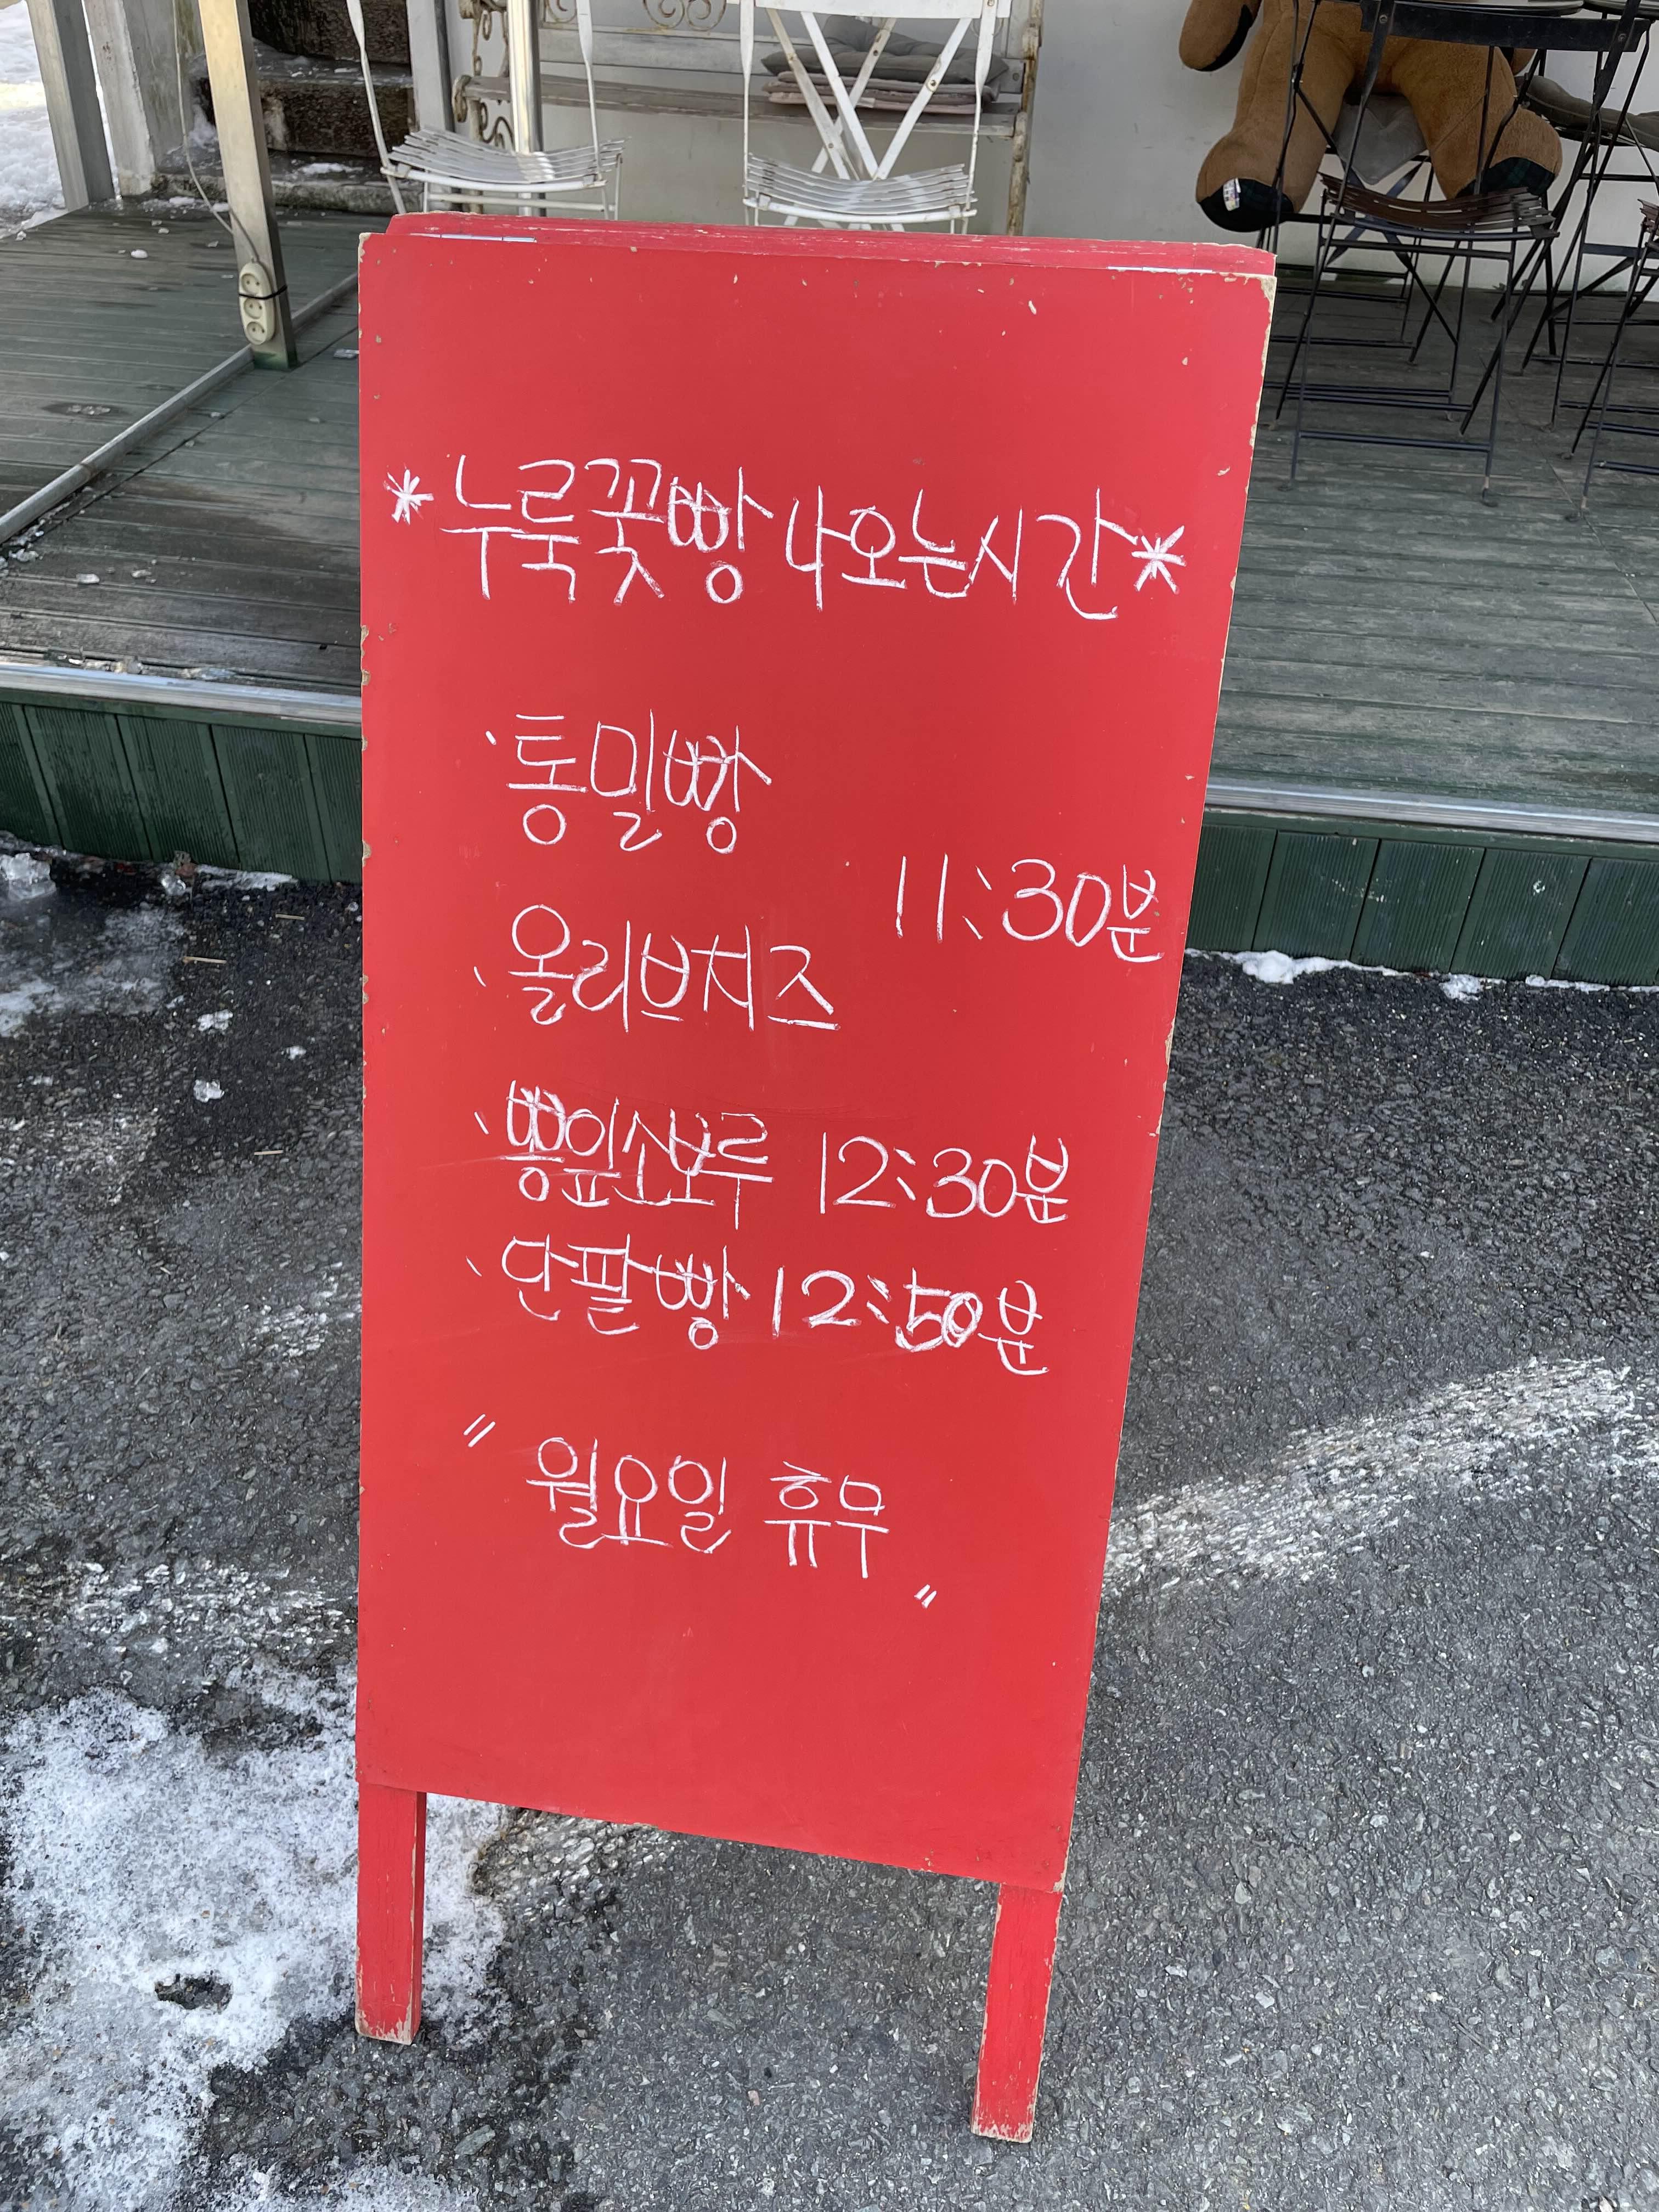 *누룩꽃빵 나오는시간*
· 통밀빵
11:30분
· 올리브치즈
· 뽕잎소보루 12:30분
· 단팥빵 12:50분
" 월요일 휴무 "